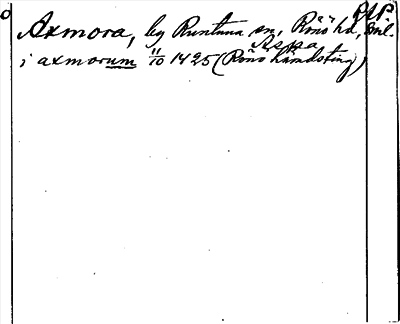 Axmora, by Runtuna sn, Rönö hd, Sml.
Aspa
i axmorum 11/10 1425 (Rönö häradsting)